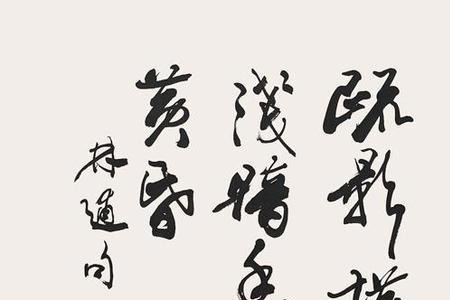 疏影横
淺暗香
黄昏
林逋句